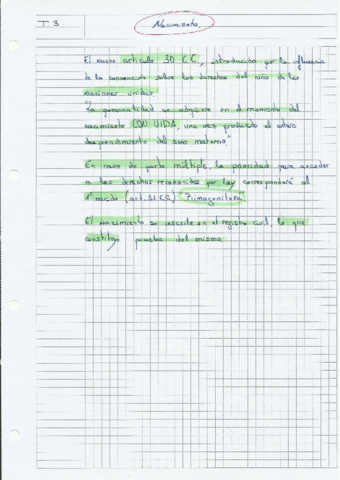 T. 3
Nacimiento.
El nuevo artículo 30 C.C, introducido por la influencia
de la convención sobre los derechos del niño de las
naciones unidas:
"La personalidad se adquiere en el momento del
nacimiento CON VIDA, una vez producido el entero
desprendimiento del seno materno"
En caso de parto múltiple, la prioridad para acceder
a los derechos reconocidos por ley corresponderá al
1º nacido (art. 31 CC) "Primogenitura"
El nacimiento se inscribe en el registro civil, lo que
constituye prueba del mismo.